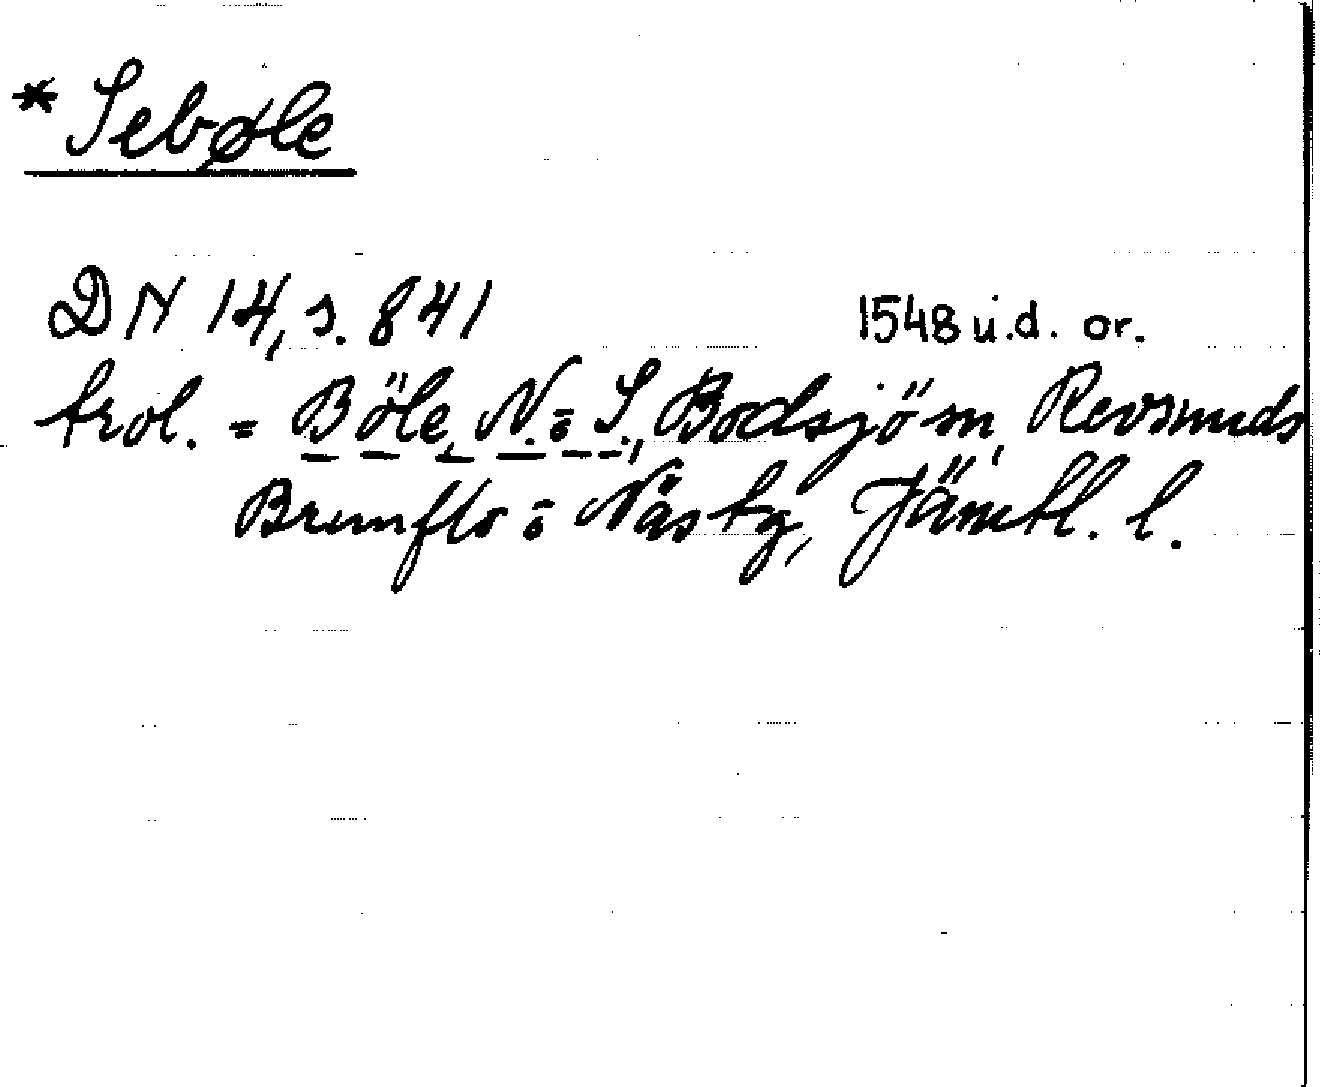 * Sebøle
DN 14, s. 841 1548 u.d. or.
trol. = Böle, N. o S., Bodsjö sn, Revsunds
Brunflo o Näs tg, Jämtl. l.